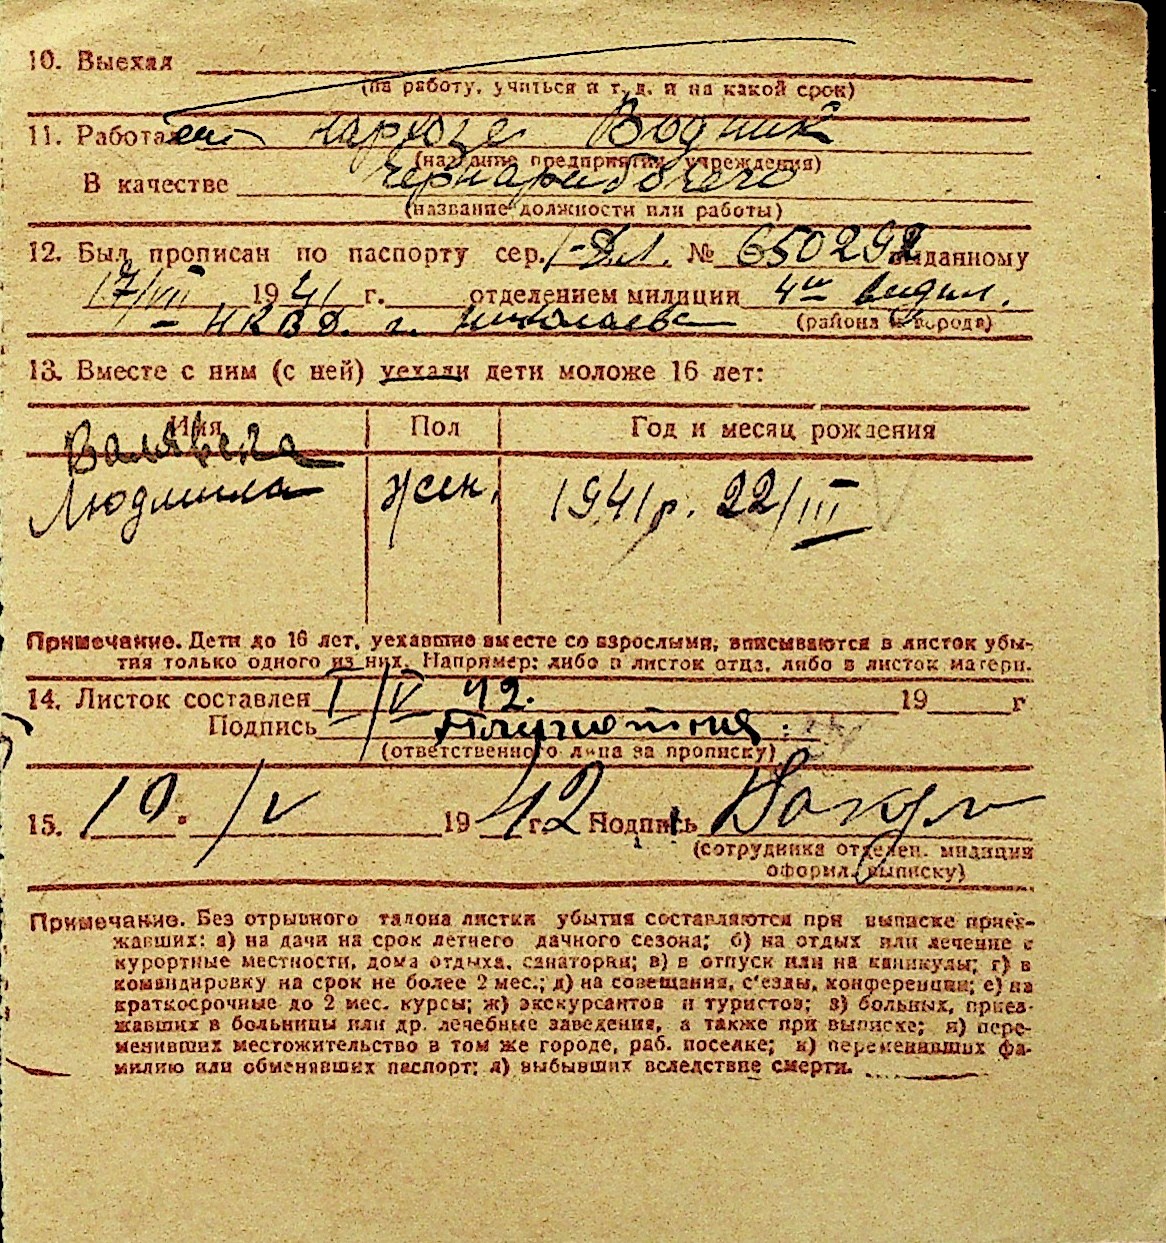 10. Выехал
(на работу, учиться и т. д. и на какой срок)
11. Работает Водник
(название предприятия, учреждения)
В качестве чернарабочего
(название должности или работы)
12. Был прописан по паспорту сер. № 650292 выданному
17/VII 1941 г. отделением милиции 4м
(района и города)
НКВД г. Николаева
13. Вместе с ним (с ней) уехали дети моложе 16 лет:
Имя Пол Год и месяц рождения
Людмила жен. 1941 р. 22/III
Примечание. Дети до 16 лет, уехавшие вместе со взрослыми, вписываются в листок убы-
тия только одного из них. Например: либо в листок отца, либо в листок матери.
14. Листок составлен I/V 42. 19 г
Подпись
(ответственного лица за прописку)
15. 10. /V 1942 г. Подпись
(сотрудника отделен. милиции
оформл. выписку)
Примечание. Без отрывного талона листки убытия составляются при выписке приез-
жавших: а) на дачи на срок летнего дачного сезона; б) на отдых или лечение в
курортные местности, дома отдыха, санатории; в) в отпуск или на каникулы; г) в
командировку на срок не более 2 мес.; д) на совещания, с'езды, конференции; е) на
краткосрочные до 2 мес. курсы; ж) экскурсантов и туристов; з) больных, приез-
жавших в больницы или др. лечебные заведения, а также при выписке; и) пере-
менивших местожительство в том же городе, раб. поселке; к) переменивших фа-
милию или обменявших паспорт; л) выбывших вследствие смерти.